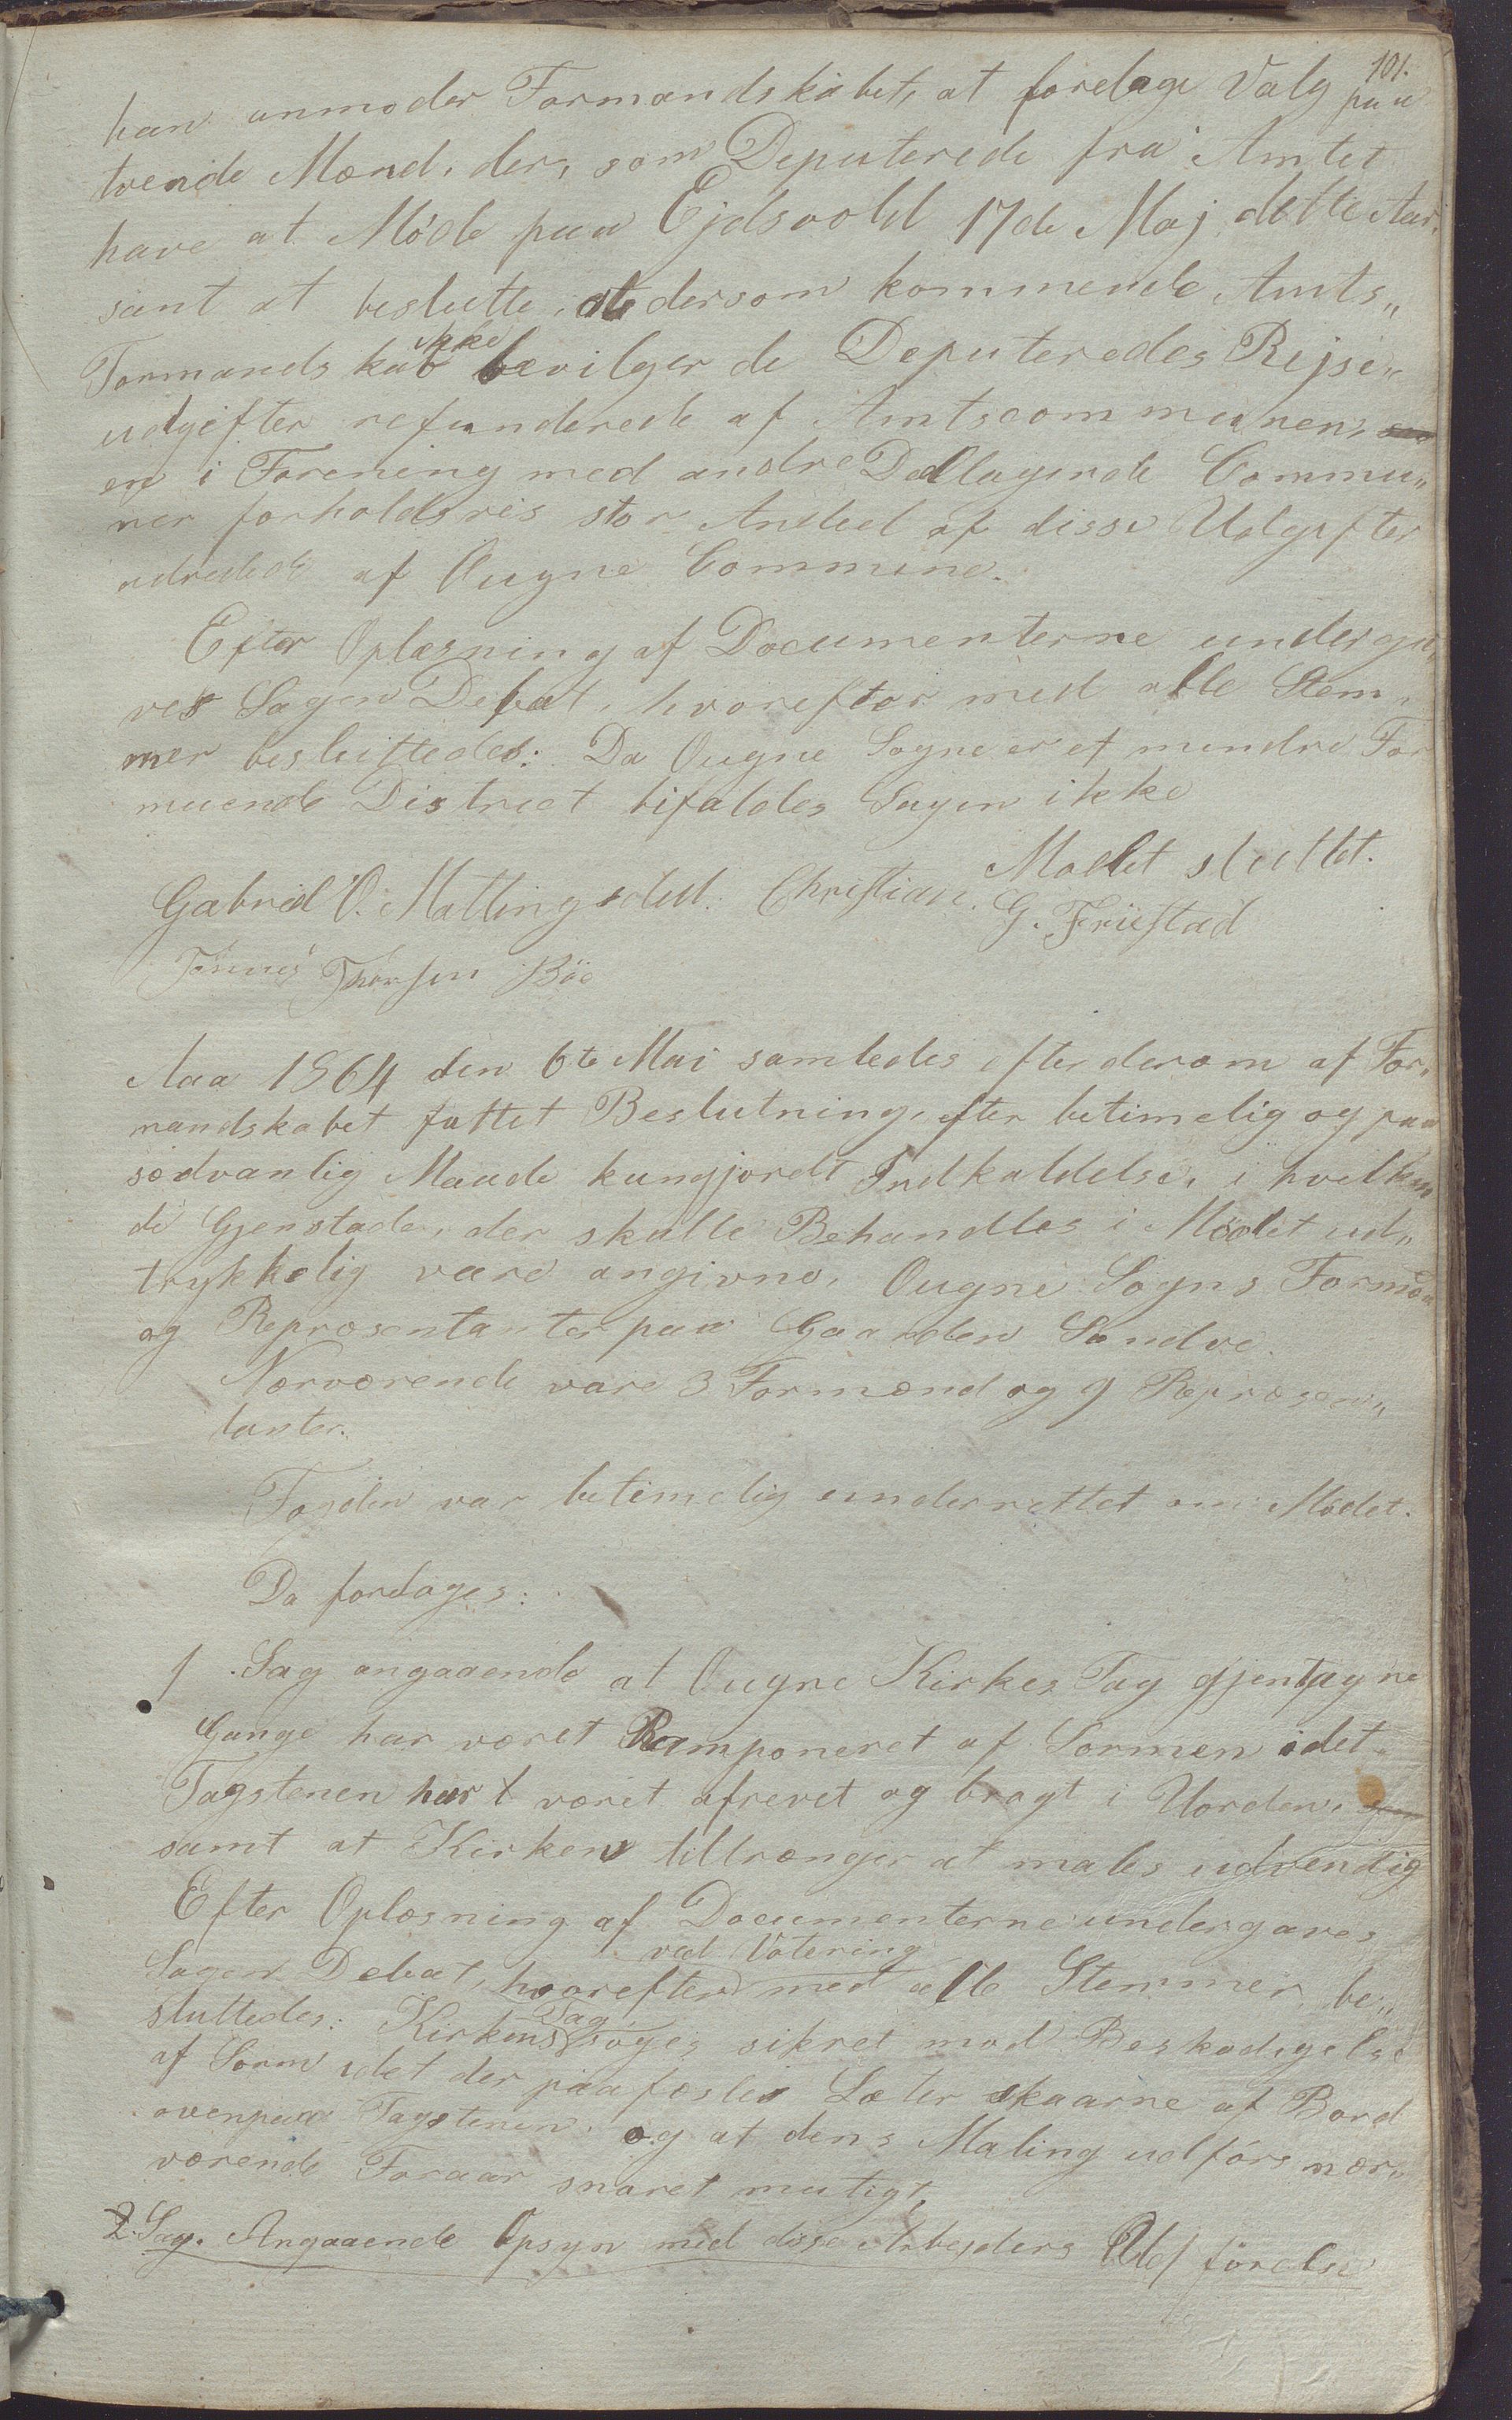 101.
han anmoder Formandskabet, at foretage Valg paa
tvende Mænd, der, som Deputerede fra Amtet
have at Møde paa Ejdsvold 17de Maj dette Aar,
samt at beslutte, at dersom kommende Amts„
Formandskab ikke bevilger de Deputeredes Rejse„
udgifter refunderede af Amtscommunen,
en i Forening med andre Deeltagende Commu„
ner forholdsvis stor Andeel af disse Udgifter
udredede af Ougne Commune.
Efter Oplæsning af Documenterne underga„
ves Sagen Debat, hvorefter med alle Stem„
mer besluttedes: Da Ougne Sogne er et mindre For
muende District bifaldes Sagen ikke
Mødet sluttet.
Gabriel O. Mattingsdal. Christian. G. Friestad
Tønnes Thorsen Böe
Aar 1864 den 6te Mai samledes efter derom af For„
mandskabet fattet Beslutning, efter betimelig og paa
sædvanlig Maade kungjordt Indkaldelse, i hvilken
de Gjenstade, der skulle Behandles i Mødet ud„
trykkelig vare angivne, Ougne Sogns Formæn
og Repræsentanter paa Gaarden Sandve.
Nærværende vare 3 Formænd og 9 Repræsen„
tanter.
Fogden var betimelig underrettet om Mødet.
Da fordages:
1 Sag angaaende at Ougne Kirkes Tag gjentagne
Gange har været Ramponeret af Stormen idet
Tagstenen har været afrevet og bragt i Uorden,
samt at Kirken tiltrænger at males udvendig
Efter Oplæsning af Documenterne undergaves
Sagen Debat, hvorefter ved Votering med alle Stemmer, be„
sluttedes: Kirkens Tag søges sikret mod Beskadigelse
af Storm idet der paafæstes Læter skaarne af Bord
ovenpaa Tagstenen, og at dens Maling udføres nær„
værende Foraar snaret mutigt,
2. Sag. Angaaende Opsyn med disse Arbejders Udførelse